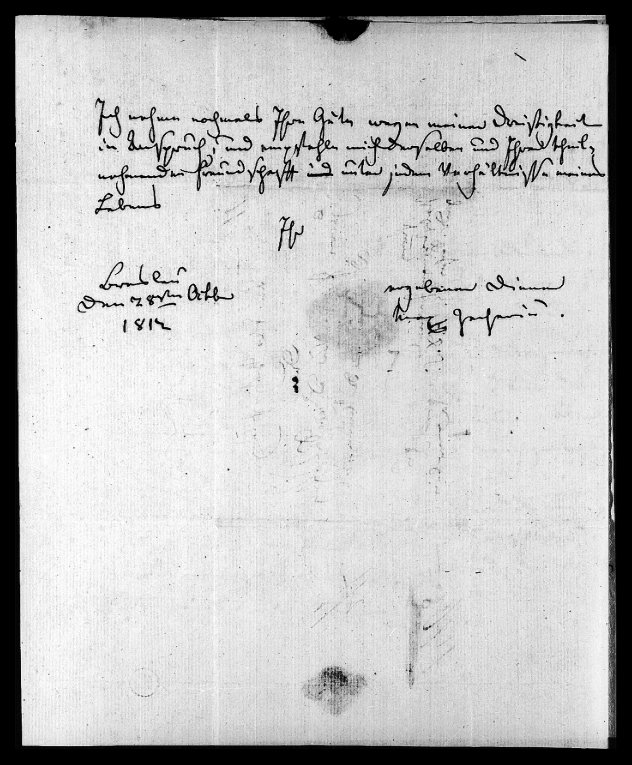 Ich nehme nochmals Ihre Güte wegen meiner Dreistigkeit
in Anspruch, und empfehle mich derselben und Ihrer theil-
nehmenden Freundschaft und unter jedem Verhältnisse meines
Lebens
Ihr
ergebener Diener
Breslau
den 28sten Octbr
1812